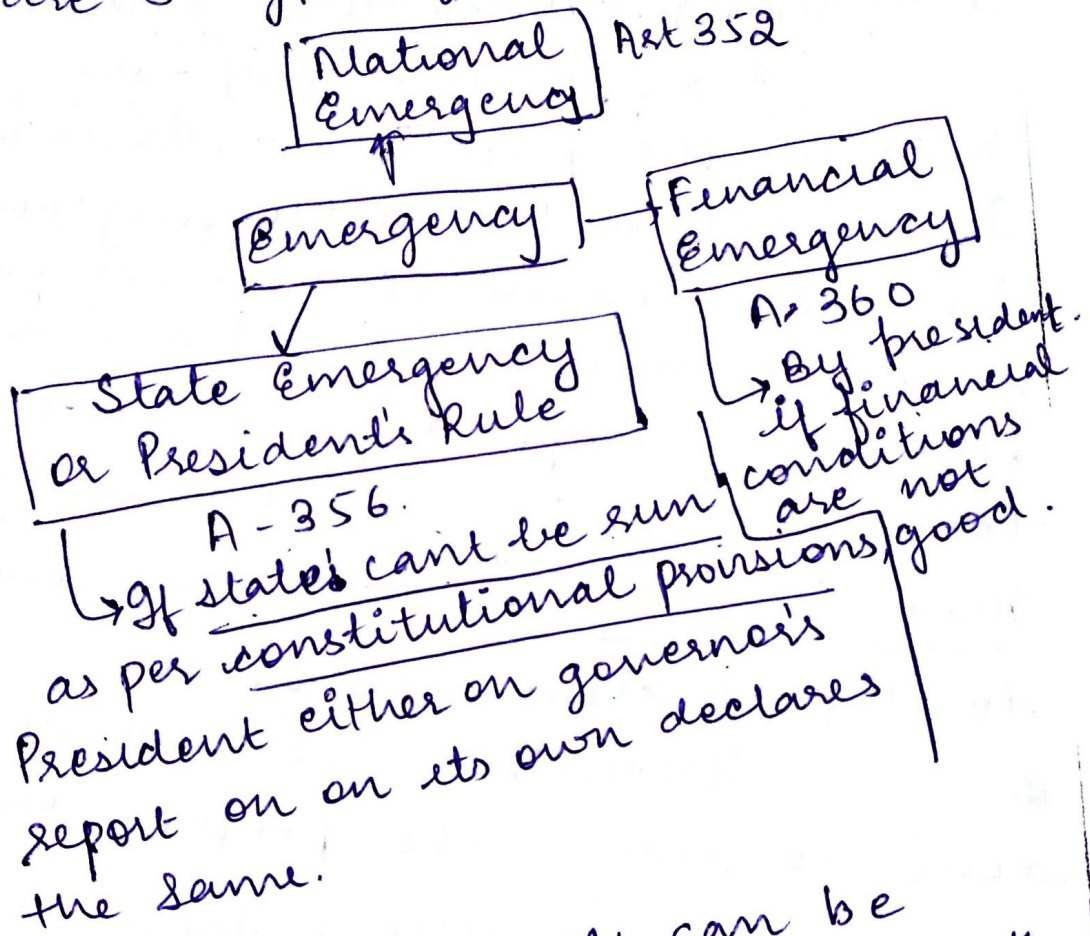 National
Emergency
Art 352
Emergency
Financial
Emergency
A. 360
By president.
if financial
conditions
are not
good.
State Emergency
or President's Rule
A - 356.
If state's can't be run
as per constitutional provisions,
President either on governor's
report on on its own declares
the same.
can be